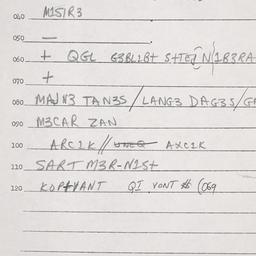 040 M1S1R3
050 —
060 + QGL G3BL1Bt S+TE
070 +
080 MAJN3 TAN3S/LANG3 DAG3S/
090 M3CAR ZAN
100 ARC1K // AXC1K
110 SART M3R-N1St
120 KOP+VANT QI VONT (069